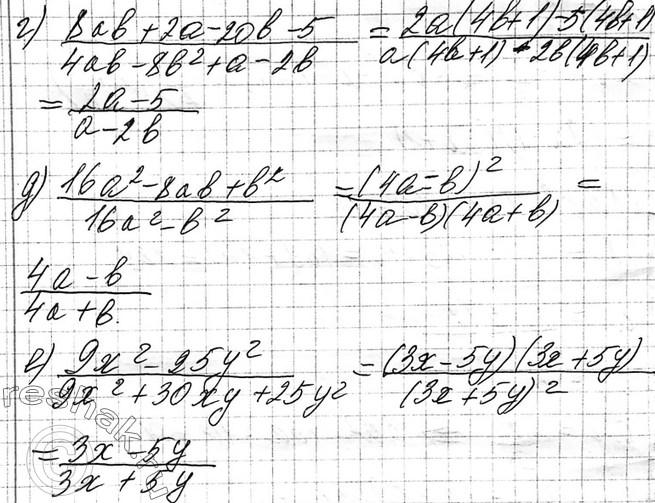 г) (8ab + 2a - 20b - 5)/(4ab - 8b² + a - 2b) = (2a(4b+1) - 5(4b+1))/(a(4b+1) - 2b(4b+1))
= (2a - 5)/(a - 2b)
д) (16a² - 8ab + b²)/(16a² - b²) = (4a - b)²/((4a - b)(4a + b)) =
(4a - b)/(4a + b).
е) (9x² - 25y²)/(9x² + 30xy + 25y²) = ((3x - 5y)(3x + 5y))/(3x + 5y)²
= (3x - 5y)/(3x + 5y)
reshak.ru